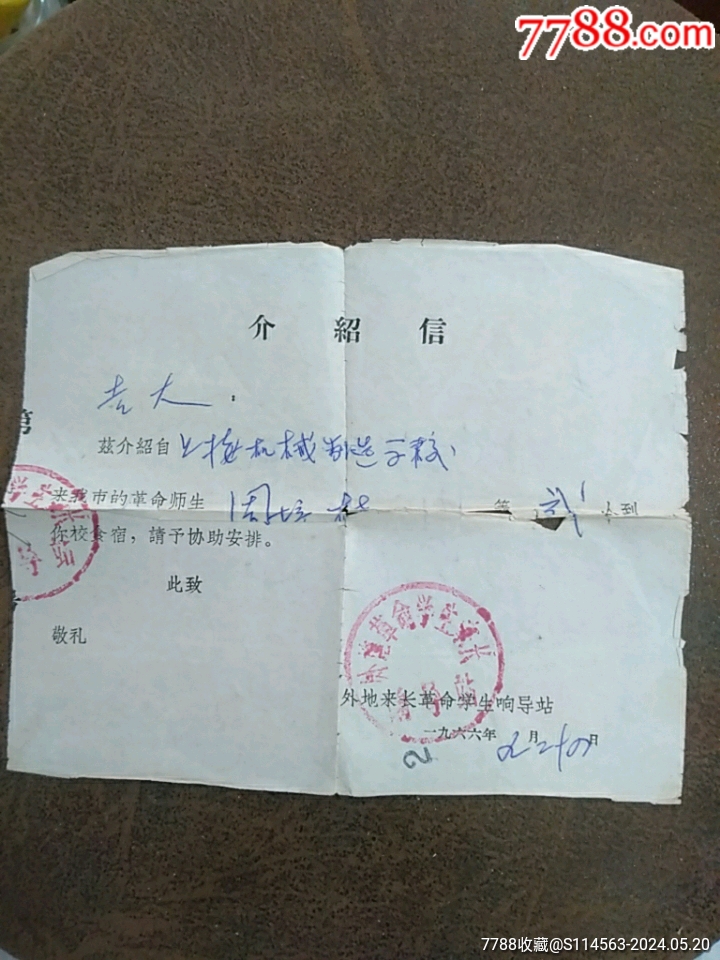 7788.com
介紹信
吉大：
第
茲介紹自上海机械制造学校
来我市的革命师生周 等 弍 人到
你校食宿，請予协助安排。
此致
敬礼
外地来长革命学生响导站
一九六六年 月 日
2
7788收藏@S114563-2024.05.20